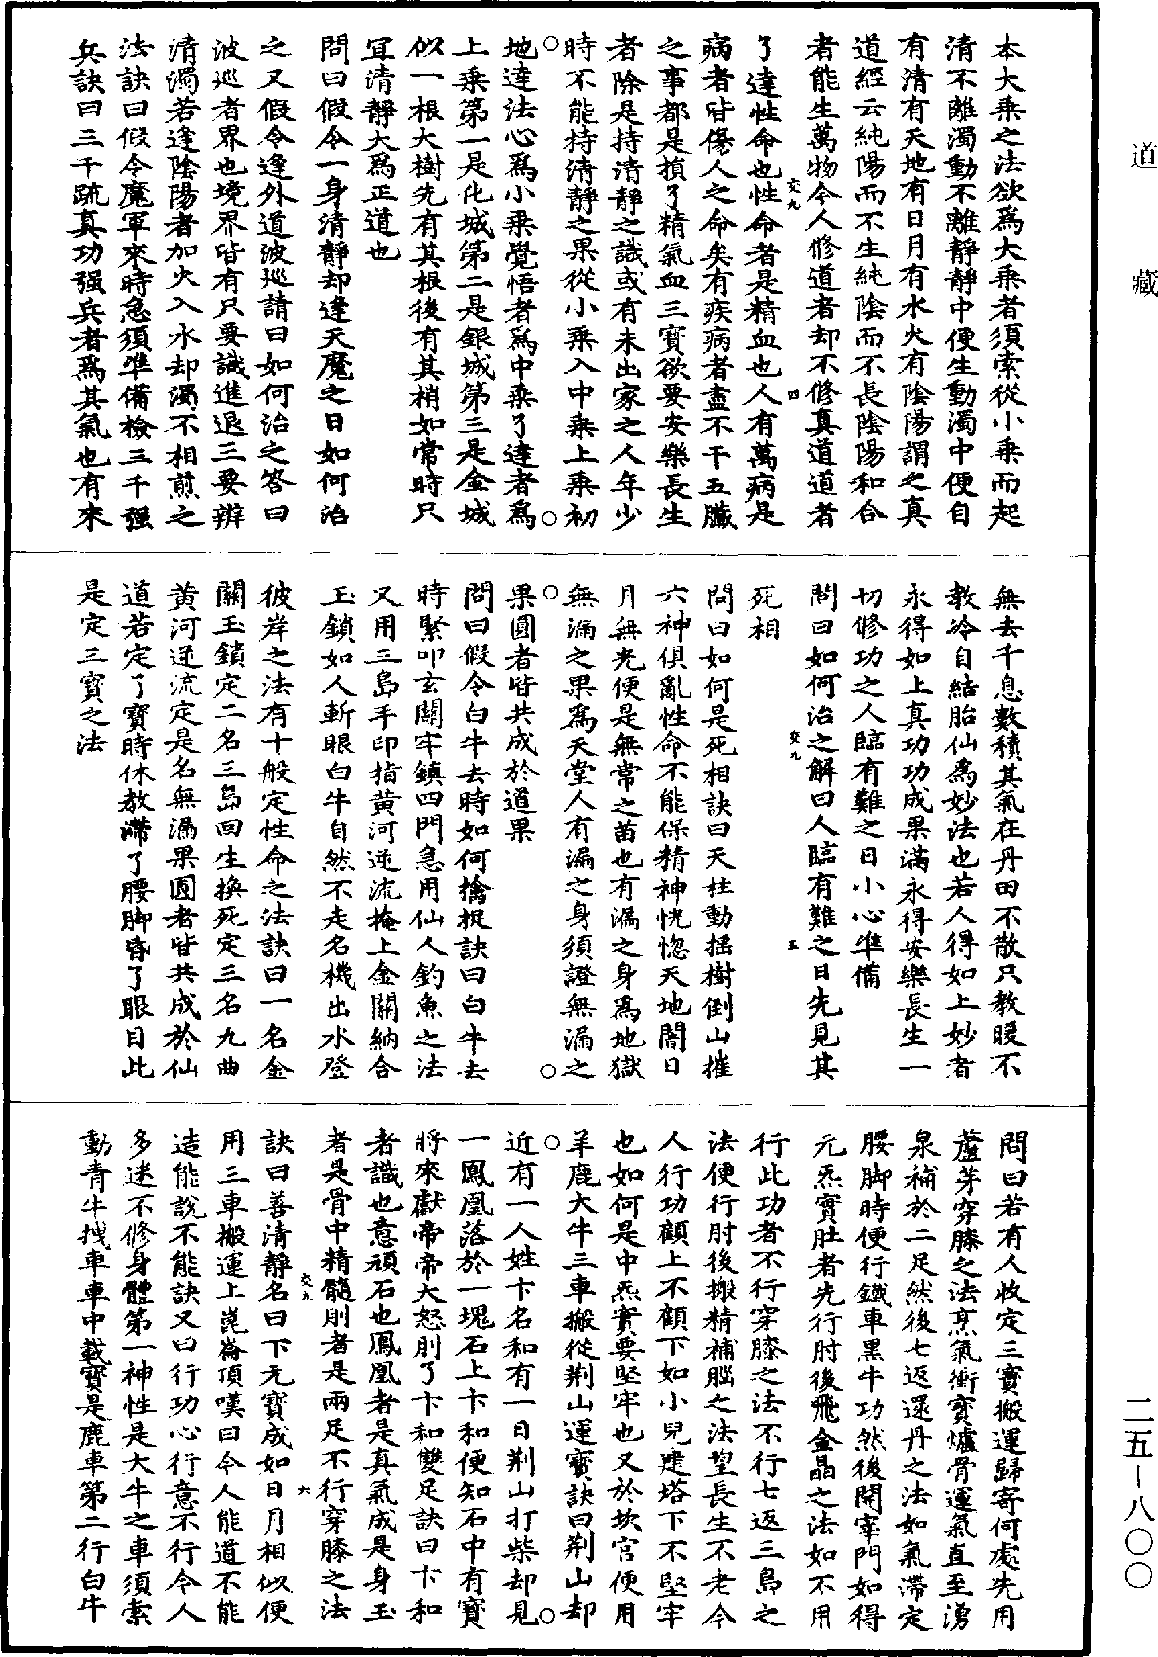 道藏
二五—八〇〇
本大乘之法欲爲大乘者須索從小乘而起
清不離濁動不離靜靜中便生動濁中便自
有清有天地有日月有水火有陰陽謂之真
道經云純陽而不生純陰而不長陰陽和合
者能生萬物今人修道者却不修真道道者
交九 四
了達性命也性命者是精血也人有萬病是
病者皆傷人之命矣有疾病者盡不干五臟
之事都是損了精氣血三寶欲要安樂長生
者除是持清靜之識或有未出家之人年少
時不能持清靜之果從小乘入中乘上乘初
○ ○
地達法心爲小乘覺悟者爲中乘了達者爲
上乘第一是化城第二是銀城第三是金城
似一根大樹先有其根後有其梢如常時只
宜清靜大爲正道也
問曰假令一身清靜却逢天魔之日如何治
之又假令逢外道波巡請曰如何治之答曰
波巡者界也境界皆有只要識進退三要辨
清濁若逢陰陽者加火入水却濁不相煎之
法訣曰假令魔軍來時急須準備檢三千强
兵訣曰三千疏真功强兵者爲其氣也有來
無去千息數積其氣在丹田不散只教暖不
教冷自結胎仙爲妙法也若人得如上妙者
永得如上真功功成果滿永得安樂長生一
切修功之人臨有難之日小心準備
問曰如何治之解曰人臨有難之日先見其
交九 五
死相
問曰如何是死相訣曰天柱動摇樹倒山摧
六神俱亂性命不能保精神恍惚天地闇日
月無光便是無常之苗也有漏之身爲地獄
無漏之果爲天堂人有漏之身須證無漏之
○ ○
果圓者皆共成於道果
問曰假令白牛去時如何擒捉訣曰白牛去
時緊叩玄關牢鎮四門急用仙人釣魚之法
又用三島手印指黄河逆流掩上金關納合
玉鎖如人斬眼白牛自然不走名機出水登
彼岸之法有十般定性命之法訣曰一名金
關玉鎖定二名三島回生換死定三名九曲
黄河逆流定是名無漏果圓者皆共成於仙
道若定了寶時休教滯了腰脚昏了眼目此
是定三寶之法
問曰若有人收定三寶搬運歸寄何處先用
蘆芽穿膝之法烹氣衝寶爐骨運氣直至湧
泉補於二足然後七返還丹之法如氣滯定
腰脚時便行鐵車黑牛功然後開宰門如得
元炁實肚者先行肘後飛金晶之法如不用
行此功者不行穿膝之法不行七返三島之
法便行肘後搬精補腦之法望長生不老今
人行功顧上不顧下如小兒建塔下不堅牢
也如何是中炁實要堅牢也又於坎宫便用
羊鹿大牛三車搬從荆山運寶訣曰荆山却
○ ○
近有一人姓卞名和有一日荆山打柴却見
一鳳凰落於一塊石上卞和便知石中有寶
將來獻帝帝大怒刖了卞和雙足訣曰卞和
者識也意頑石也鳳凰者是真氣成是身玉
者是骨中精髓刖者是兩足不行穿膝之法
交九 六
訣曰善清靜名曰下元寶成如日月相似便
用三車搬運上崑崙頂嘆曰今人能道不能
造能說不能訣又曰行功心行意不行今人
多迷不修身體第一神性是大牛之車須索
動青牛拽車車中載寶是鹿車第二行白牛